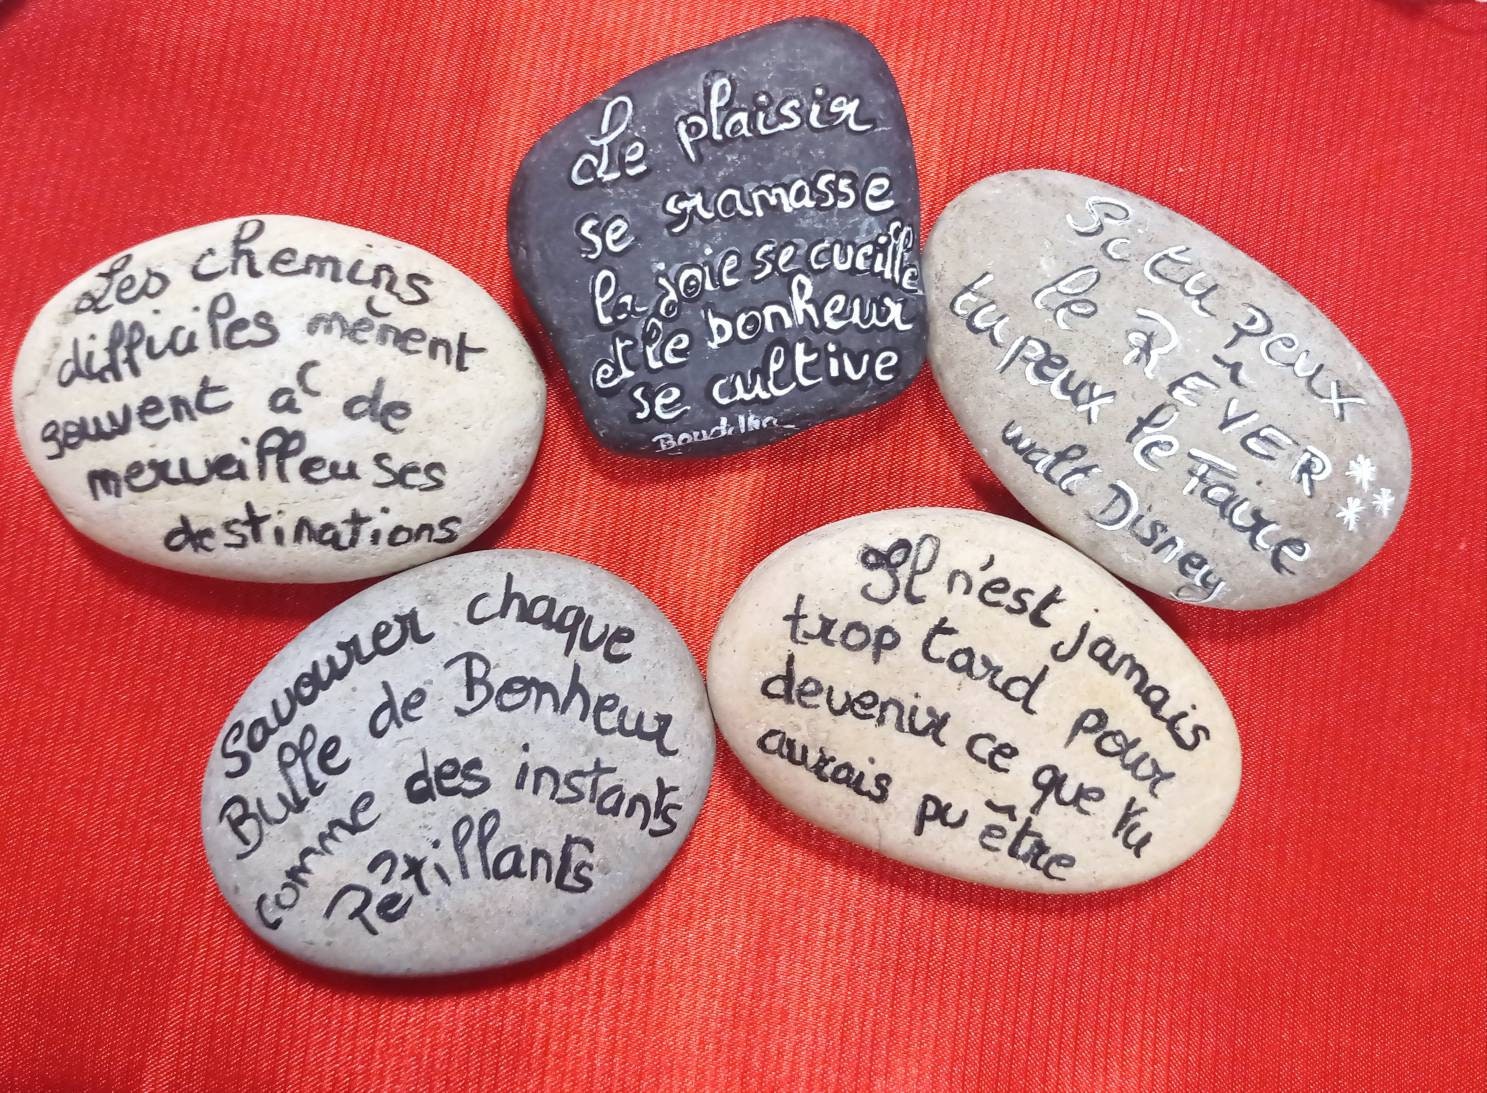 Les chemins
difficiles mènent
souvent à de
merveilleuses
destinations
Le plaisir
se ramasse
la joie se cueille
et le bonheur
se cultive
Bouddha
Si tu peux
le RÊVER
tu peux le Faire
walt Disney
Savourer chaque
Bulle de Bonheur
comme des instants
Pétillants
Il n'est jamais
trop tard pour
devenir ce que tu
aurais pu être